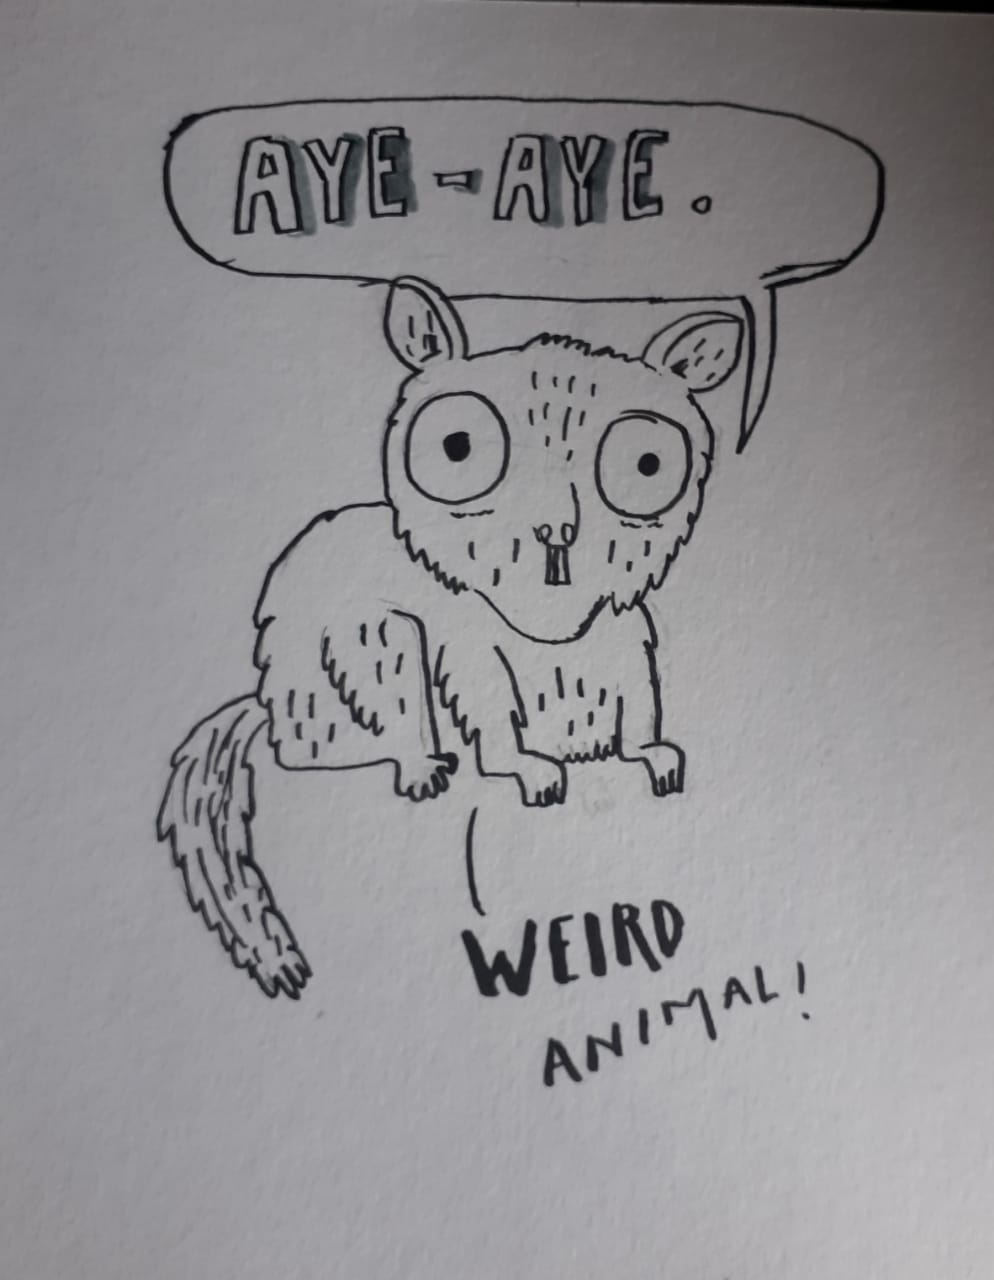 AYE-AYE.
WEIRD
ANIMAL!